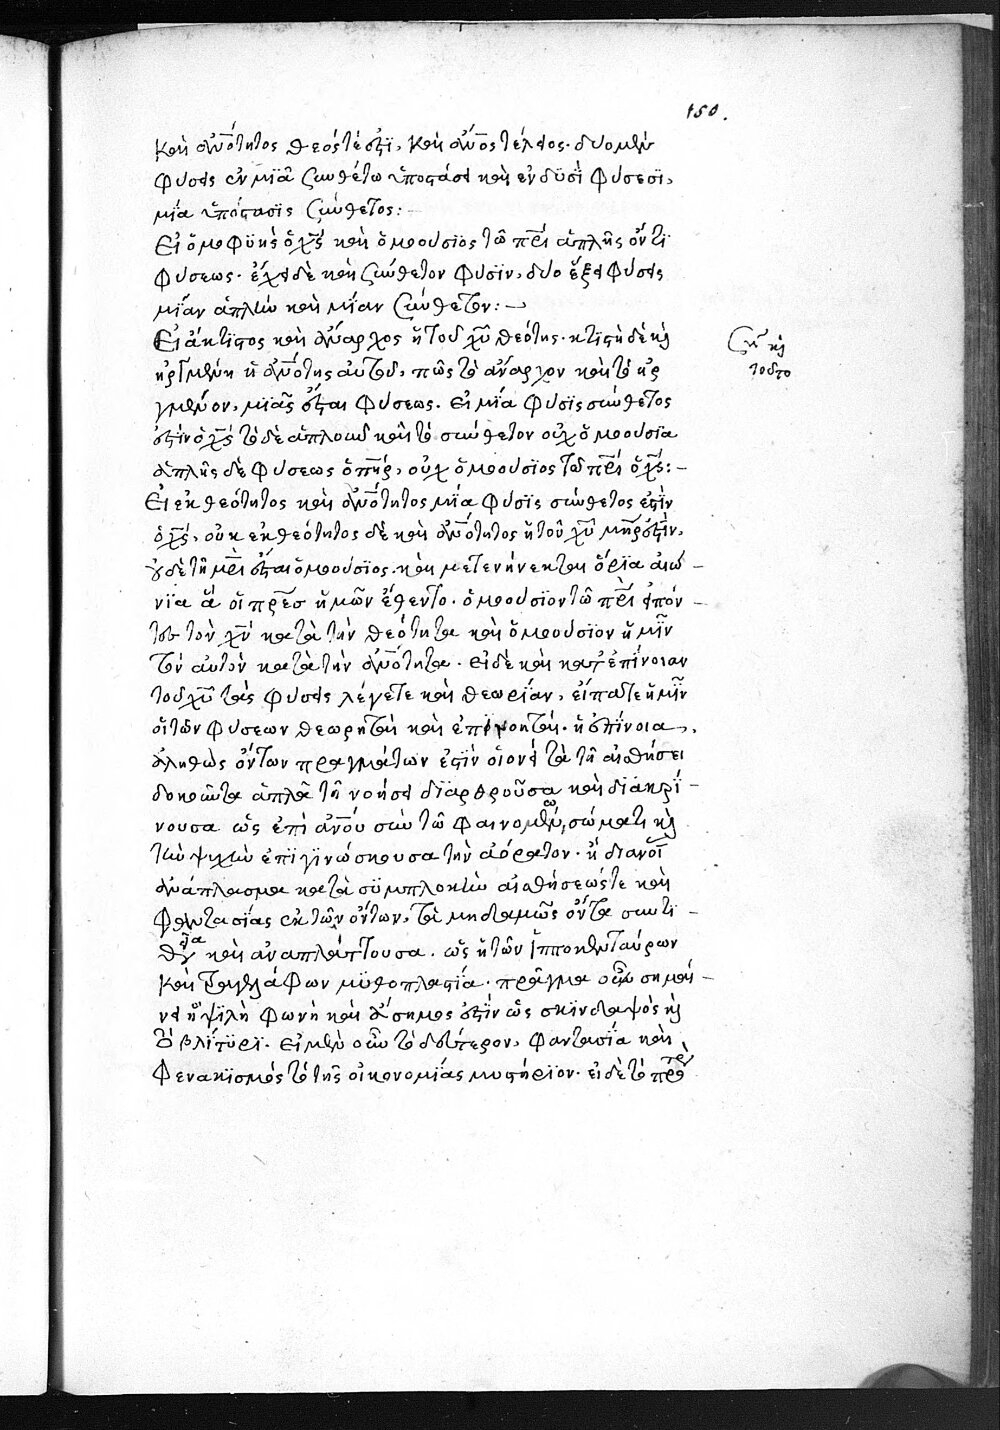 150.
καὶ ἀν̅ότητος θεός τέ ἐστϊ, καὶ ἀν̅ος τέλειος. δύο μὲν
φύσεις ἐν μϊᾶ συνθέτω ὑποστάσει καὶ ἐν δϋσὶ φύσεσϊ,
μία ὑπόστασϊς σύνθετος:
Εἰ ὁμοφϋὴς ὁ χ̅ς καὶ ὁμοούσϊος τῶ π̅ρϊ ἁπλῆς ὄντϊ
φύσεως. ἔχει δὲ καὶ σύνθετον φύσϊν, δύο ἕξει φύσεις
μίαν ἁπλὴν καὶ μίαν σύνθετον:
Εἰ ἄκτϊστος καὶ ἄναρχος ἡ τοῦ χ̅υ θεότης. κτϊστὴ δὲ κὶ
ἠργμένη ἡ ἀν̅ότης αὐτοῦ, πῶς τὸ ἄναρχον καὶ τὸ ἠρ
γμένον, μϊᾶς ἔσται φύσεως. Εἰ μία φύσϊς σύνθετος
ἐστὶν ὁ χ̅ς τὸ δὲ ἁπλοῦν καὶ τὸ σύνθετον οὐχ ὁμοούσϊα
ἁπλῆς δὲ φύσεως ὁ π̅ηρ, οὐχ ὁμοούσϊος τῶ π̅ρϊ ὁ χ̅ς:
σή κὶ
τοῦτο
Εἰ ἐκ θεότητος καὶ ἀν̅ότητος μία φύσϊς σύνθετος ἐστϊν
ὁ χ̅ς, οὐκ ἐκ θεότητος δὲ καὶ ἀν̅ότητος ἡ τοῦ χ̅υ μ̅ηρ ἐστϊν,
οὐδὲ τῆ μ̅ρϊ ἔσται ὁμοούσϊος. καὶ μετενήνεκται ὅρϊα αἰώ
νϊα ἃ οἱ π̅ρες ἡμῶν ἔθεντο. ὁμοούσϊον τῶ π̅ρϊ εἰπόν
τες τὸν χ̅ν κατὰ τὴν θεότητα καὶ ὁμοούσϊον ἡμῖν
τὸν αὐτὸν κατὰ τὴν ἀν̅ότητα. εἰ δὲ καὶ κατ' ἐπίνοιαν
τοῦ χ̅υ τὰς φύσεις λέγετε καὶ θεωρίαν, εἴπατε ἡμῖν
οἱ τῶν φύσεων θεωρηταὶ καὶ ἐπινοηταί. ἡ ἐπίνοια,
ἀληθῶς ὄντων πραγμάτων ἐστὶν οἱονεὶ τὰ τῆ αἰσθήσει
δοκοῦντα ἁπλᾶ τῆ νοήσει δϊαρθροῦσα καὶ δϊακρί
νουσα ὡς ἐπὶ ἀν̅ου σὺν τῶ φαινομένω, σώματι κὶ
τὴν ψυχὴν ἐπϊγϊνώσκουσα τὴν ἀόρατον. ἢ διανοί
ἀνάπλασμα κατὰ σϋμπλοκὴν αἰσθήσεώς τε καὶ
φαντασίας ἐκ τῶν ὄντων, τὰ μηδαμῶς ὄντα συντϊ
θεῖσα καὶ ἀναπλάττουσα. ὡς ἡ τῶν ἱπποκενταύρων
καὶ τραγελάφων μϋθοπλαστία. πρᾶγμα οὖν σημαί
νει ἢ ψϊλὴ φωνὴ καὶ ἄσημος ἐστὶν ὡς σκϊνδαψὸς κὶ
τὸ βλίτϋρϊ. Εἰ μὲν οὖν τὸ δεύτερον, φαντασία καὶ
φενακϊσμὸς τὸ τῆς οἰκονομίας μυστήρϊον. εἰ δὲ τὸ πρό